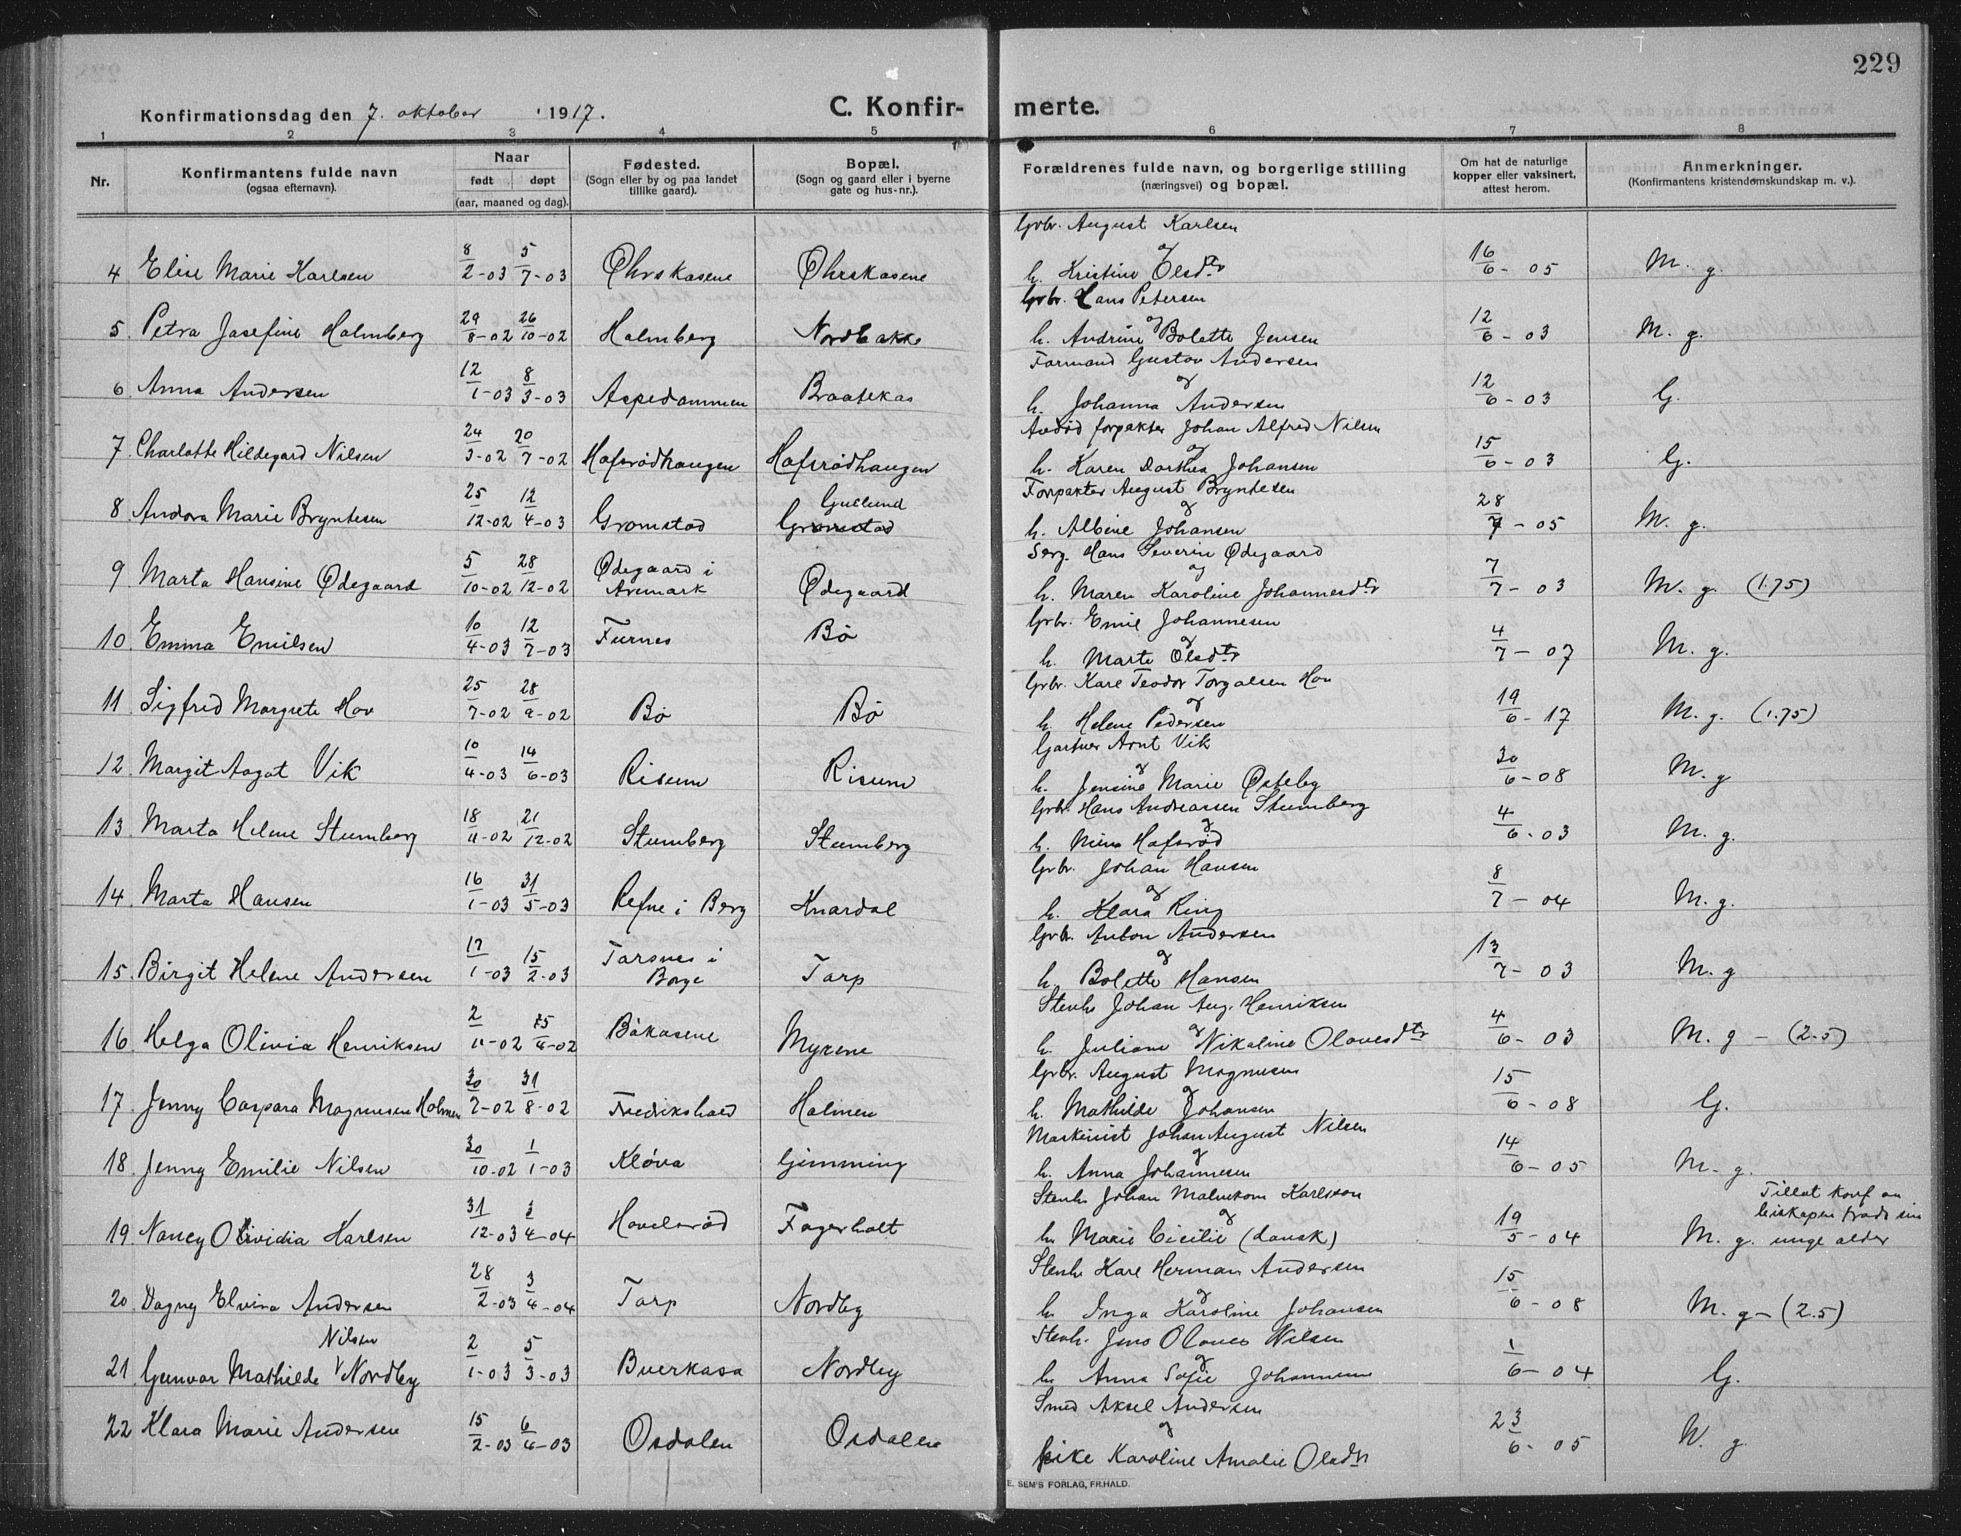 229
Konfirmationsdag den 7. oktober 1917.
C. Konfir- merte.
1 2 3 4 5 6 7 8
Nr.
Konfirmantens fulde navn
(ogsaa efternavn).
Naar
født døpt
(aar, maaned og dag).
Fødested.
(Sogn eller by og paa landet
tillike gaard).
Bopæl.
(Sogn og gaard eller i byerne
gate og hus-nr.).
Forældrenes fulde navn, og borgerlige stilling
(næringsvei) og bopæl.
Om hat de naturlige
kopper eller vaksinert,
attest herom.
Anmerkninger.
(Konfirmantens kristendomskundskap m. v.).
Grbr. August Karlsen
og
4 Elise Marie Karlsen 8/2-03 5/7-03 Øhrskasene Øhrskasene h. Kristine Olsdtr 16/6-05 M. g.
Grbr. Hans Petersen
og
5 Petra Josefine Holmberg 29/8-02 26/10-02 Holmberg Nordbakke h. Andrine Bolette Jensen 12/6-03 M. g.
Formand Gustav Andersen
og
6 Anna Andersen 12/1-03 8/3-03 Aspedammen Braatekas h. Johanna Andersen 12/6-03 G.
Avdød forpakter Johan Alfred Nilsen
og
7 Charlotte Hildegard Nilsen 24/3-02 20/7-02 Hafsrødhaugen Hafsrødhaugen h. Karen Dorthea Johansen 15/6-03 G.
Forpakter August Bryntesen
og
Gullund
8 Andora Marie Bryntesen 25/12-02 12/4-03 Gromstad Gromstad h. Albine Johansen 28/7-05 M. g.
Serg. Hans Severin Ødegaard
og
9 Marta Hansine Ødegaard 5/10-02 28/12-02 Ødegaard i Aremark Ødegaard h. Maren Karoline Johannesdtr 7/7-03 M. g. (1.75)
Grbr. Emil Johannesen
og
10 Emma Emilsen 10/4-03 12/7-03 Furnes Bø h. Marte Olsdtr 4/7-07 M. g.
Grbr. Karl Teodor Torgalsen Hov
og
11 Sigfred Margrete Hov 25/7-02 28/9-02 Bø Bø h. Helene Pedersen 19/6-17 M. g. (1.75)
Gartner Arnt Vik
og
12 Margit Aagot Vik 10/4-03 14/6-03 Risum Risum h. Jensine Marie Østeby 30/6-08 M. g
Grbr. Hans Andreassen Stumberg
og
13 Marta Helene Stumberg 18/11-02 21/12-02 Stumberg Stumberg h. Mina Hafsrød 4/6-03 M. g.
Grbr. Johan Hansen
og
14 Marta Hansen 16/1-03 31/5-03 Refne i Berg Knardal h. Klara Ring 8/7-04 M. g.
Grbr. Anton Andersen
og
15 Birgit Helene Andersen 17/1-03 15/2-03 Torsnes i Borge Torp h. Bolette Hansen 13/7-03 M. g
Stenh. Johan Aug. Henriksen
og
16 Helga Olivia Henriksen 2/11-02 Bøkasene Myrene h. Juliane Nikoline Olavesdtr 4/6-03 M. g - (2.5)
Grbr. August Magnusen
og
17 Jenny Caspara Magnusen Holmen 30/7-02 31/8-02 Fredrikshald Holmen h. Mathilde Johansen 15/6-08 G.
Maskinist Johan August Nilsen
og
18 Jenny Emilie Nilsen 30/10-02 1/1-03 Kløva Gimming h. Anna Johannesen 14/6-05 M. g.
Stenh. Johan Malmkom Karlsson
og
Tillat konf av
biskapen trods sin
19 Nancy Olividia Karlsen 31/12-03 3/4-04 Hovelsrød Fagerholt h. Marie Cicilie (dansk) 19/5-04 M. g. unge alder
Stenh. Karl Herman Andersen
og
20 Dagny Elvina Andersen 28/2-03 3/4-04 Torp Nordby h. Inga Karoline Johansen 15/6-08 M. g - (2.5)
Stenh. Jens Olaves Nilsen
og
Nilsen
21 Gunvor Mathilde Nordby 2/1-03 5/3-03 Buerkasa Nordby h. Anna Sofie Johannesen 1/6-04 G.
Smed Aksel Andersen
og
22 Klara Marie Andersen 15/2-03 6/4-03 Osdalen Osdalen Karoline Amalie Olsdtr 23/6-05 M. g.
E. SEM'S FORLAG, FR.HALD.